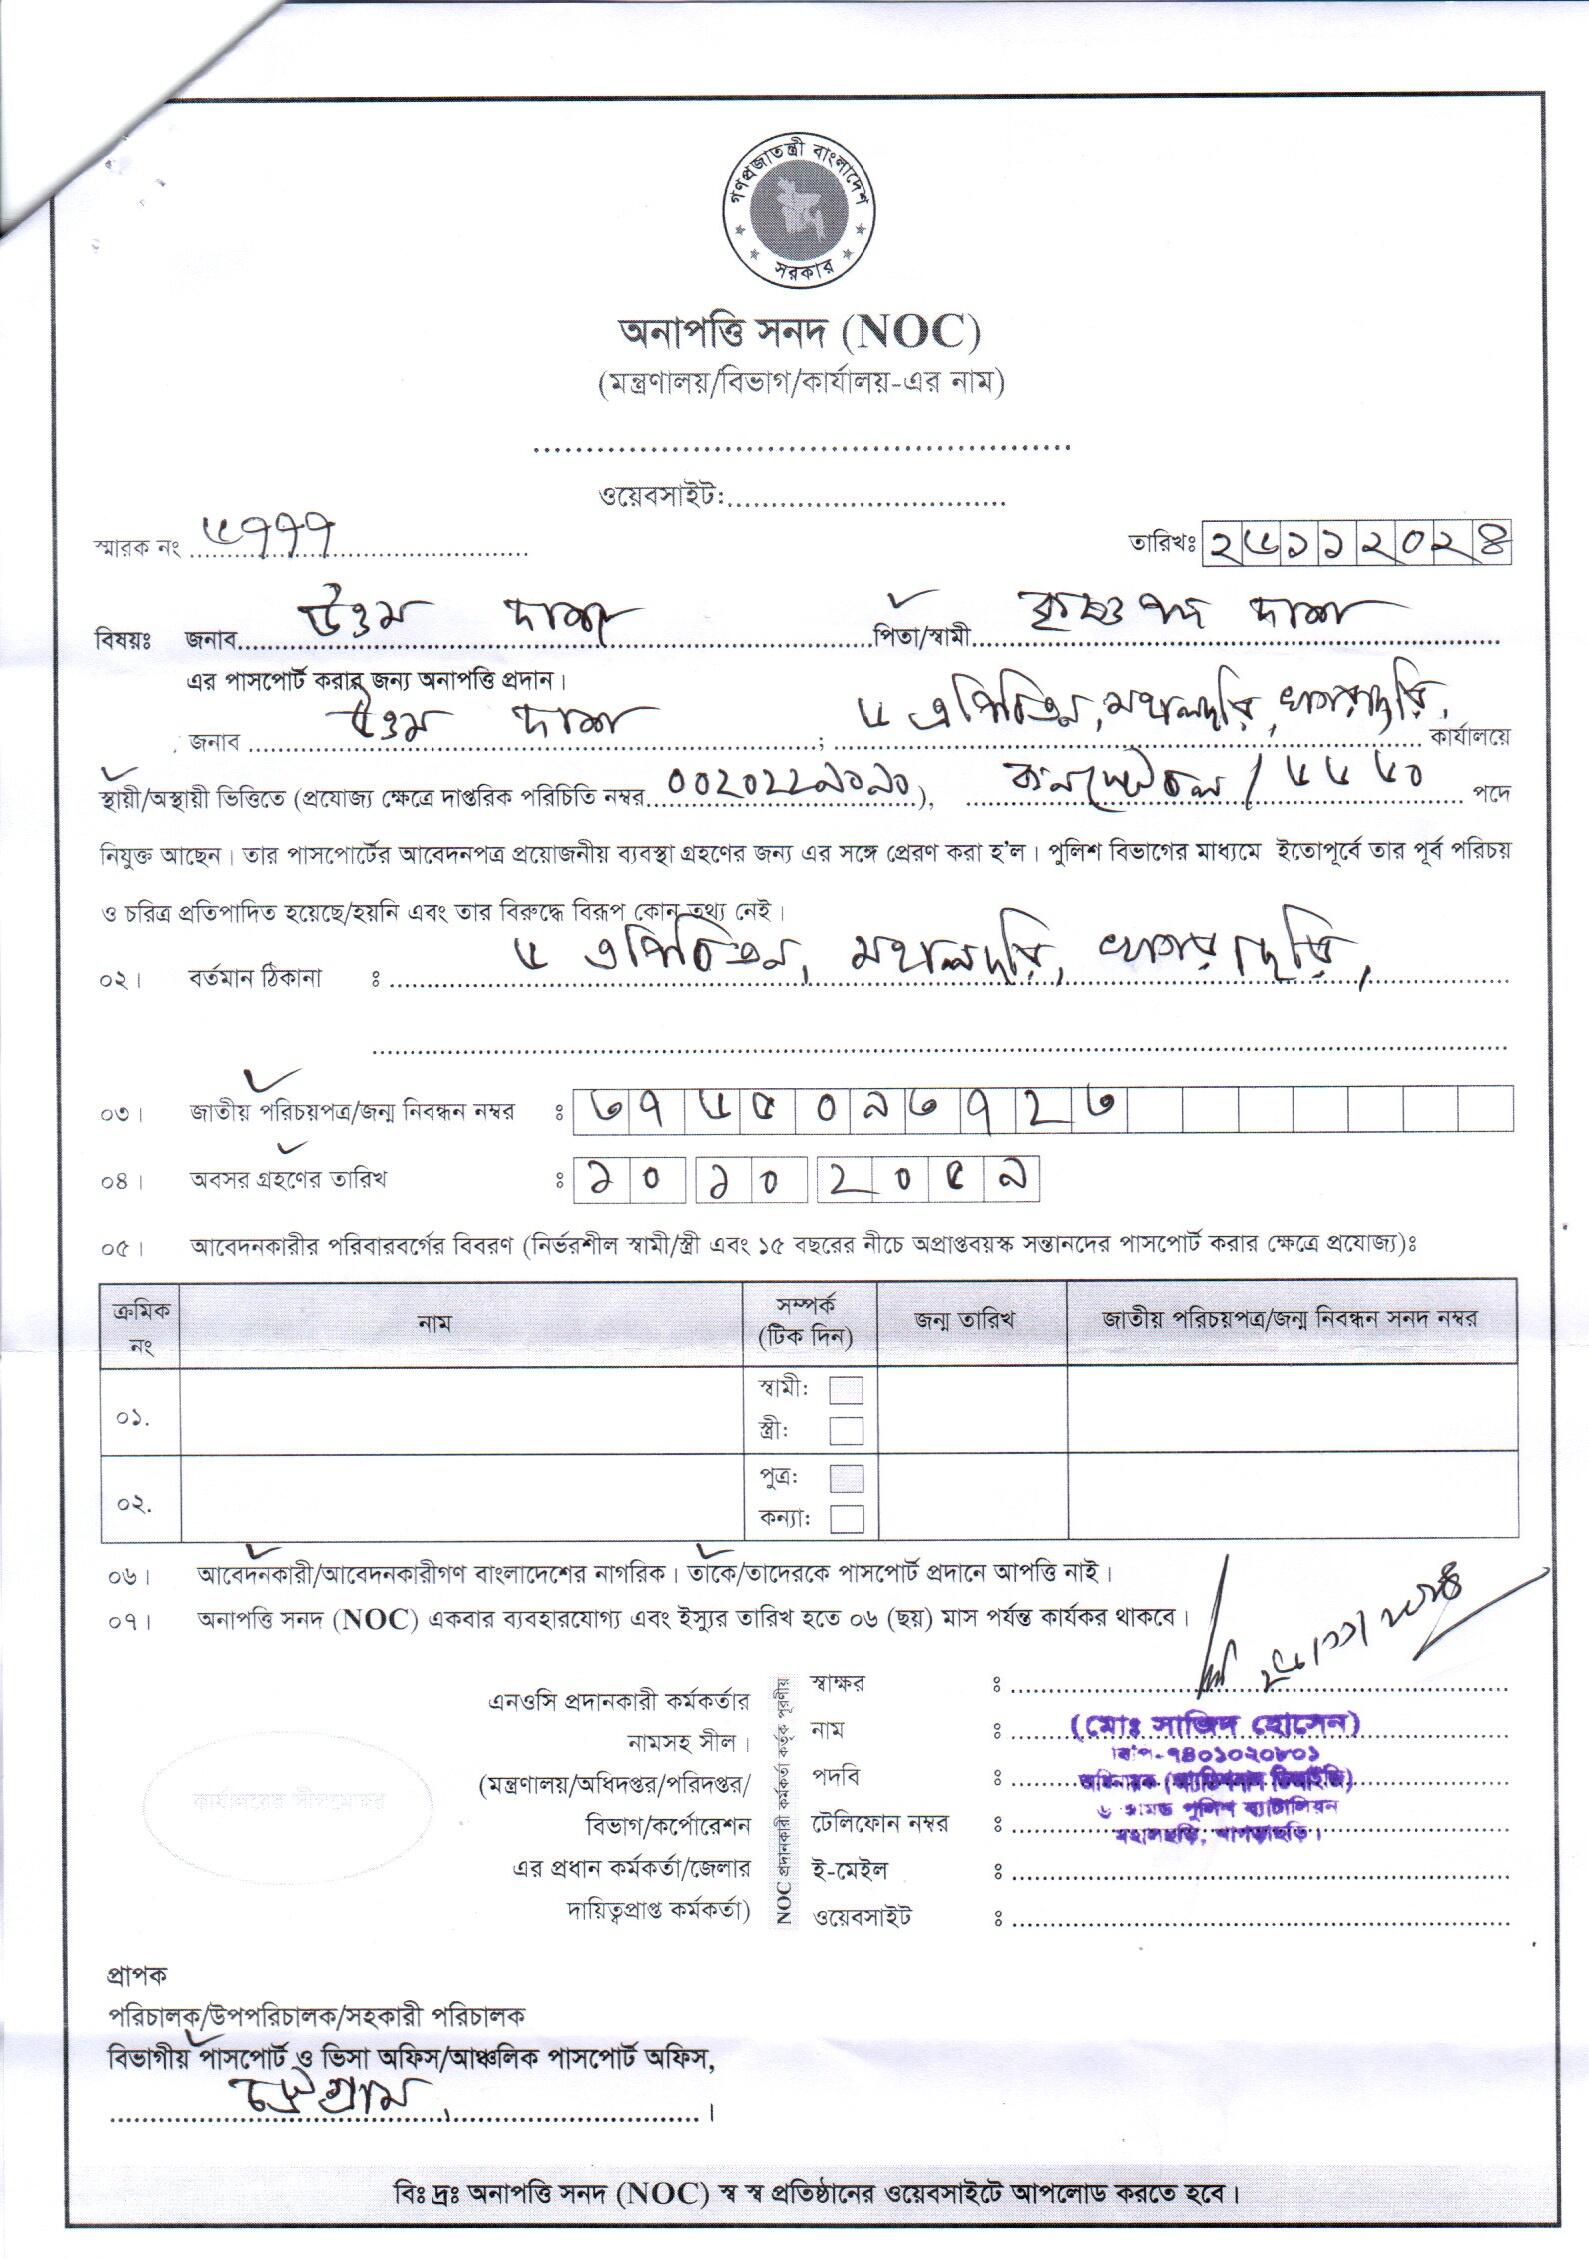 গণপ্রজাতন্ত্রী বাংলাদেশ
সরকার
অনাপত্তি সনদ (NOC)
(মন্ত্রণালয়/বিভাগ/কার্যালয়-এর নাম)
ওয়েবসাইট:
স্মারক নং ৬৭৭৭
তারিখঃ ২৬১১২০২৪
বিষয়ঃ জনাব উত্তম দাশ পিতা/স্বামী কৃষ্ণ পদ দাশ
এর পাসপোর্ট করার জন্য অনাপত্তি প্রদান।
জনাব উত্তম দাশ ; ৬ এপিবিএন, মহালছড়ি, খাগড়াছড়ি, কার্যালয়ে
স্থায়ী/অস্থায়ী ভিত্তিতে (প্রযোজ্য ক্ষেত্রে দাপ্তরিক পরিচিতি নম্বর ), কনস্টেবল/৬৬৬০ পদে
নিযুক্ত আছেন। তার পাসপোর্টের আবেদনপত্র প্রয়োজনীয় ব্যবস্থা গ্রহণের জন্য এর সঙ্গে প্রেরণ করা হ'ল। পুলিশ বিভাগের মাধ্যমে ইতোপূর্বে তার পূর্ব পরিচয়
ও চরিত্র প্রতিপাদিত হয়েছে/হয়নি এবং তার বিরুদ্ধে বিরূপ কোন তথ্য নেই।
০২। বর্তমান ঠিকানা ঃ ৬ এপিবিএন, মহালছড়ি, খাগড়াছড়ি,
০৩। জাতীয় পরিচয়পত্র/জন্ম নিবন্ধন নম্বর ঃ ৩৭৬৫০৯৩৭২৩
০৪। অবসর গ্রহণের তারিখ ঃ ১০ ১০ ২০৫৯
০৫। আবেদনকারীর পরিবারবর্গের বিবরণ (নির্ভরশীল স্বামী/স্ত্রী এবং ১৫ বছরের নীচে অপ্রাপ্তবয়স্ক সন্তানদের পাসপোর্ট করার ক্ষেত্রে প্রযোজ্য)ঃ
ক্রমিক নং নাম সম্পর্ক (টিক দিন) জন্ম তারিখ জাতীয় পরিচয়পত্র/জন্ম নিবন্ধন সনদ নম্বর
০১. স্বামী:
স্ত্রী:
০২. পুত্র:
কন্যা:
০৬। আবেদনকারী/আবেদনকারীগণ বাংলাদেশের নাগরিক। তাঁকে/তাদেরকে পাসপোর্ট প্রদানে আপত্তি নাই।
০৭। অনাপত্তি সনদ (NOC) একবার ব্যবহারযোগ্য এবং ইস্যুর তারিখ হতে ০৬ (ছয়) মাস পর্যন্ত কার্যকর থাকবে।
কার্যালয়ের সীলমোহর
এনওসি প্রদানকারী কর্মকর্তার
নামসহ সীল।
(মন্ত্রণালয়/অধিদপ্তর/পরিদপ্তর/
বিভাগ/কর্পোরেশন
এর প্রধান কর্মকর্তা/জেলার
দায়িত্বপ্রাপ্ত কর্মকর্তা)
NOC প্রদানকারী কর্মকর্তা কর্তৃক পূরণীয়
স্বাক্ষর ঃ
নাম ঃ (মোঃ সাজিদ হোসেন)
বিপি-৭৪০১০২০৮০১
পদবি ঃ অধিনায়ক (অ্যাডিশনাল ডিআইজি)
৬ আমর্ড পুলিশ ব্যাটালিয়ন
টেলিফোন নম্বর ঃ মহালছড়ি, খাগড়াছড়ি।
ই-মেইল ঃ
ওয়েবসাইট ঃ
প্রাপক
পরিচালক/উপপরিচালক/সহকারী পরিচালক
বিভাগীয় পাসপোর্ট ও ভিসা অফিস/আঞ্চলিক পাসপোর্ট অফিস,
চট্টগ্রাম ।
বিঃ দ্রঃ অনাপত্তি সনদ (NOC) স্ব স্ব প্রতিষ্ঠানের ওয়েবসাইটে আপলোড করতে হবে।